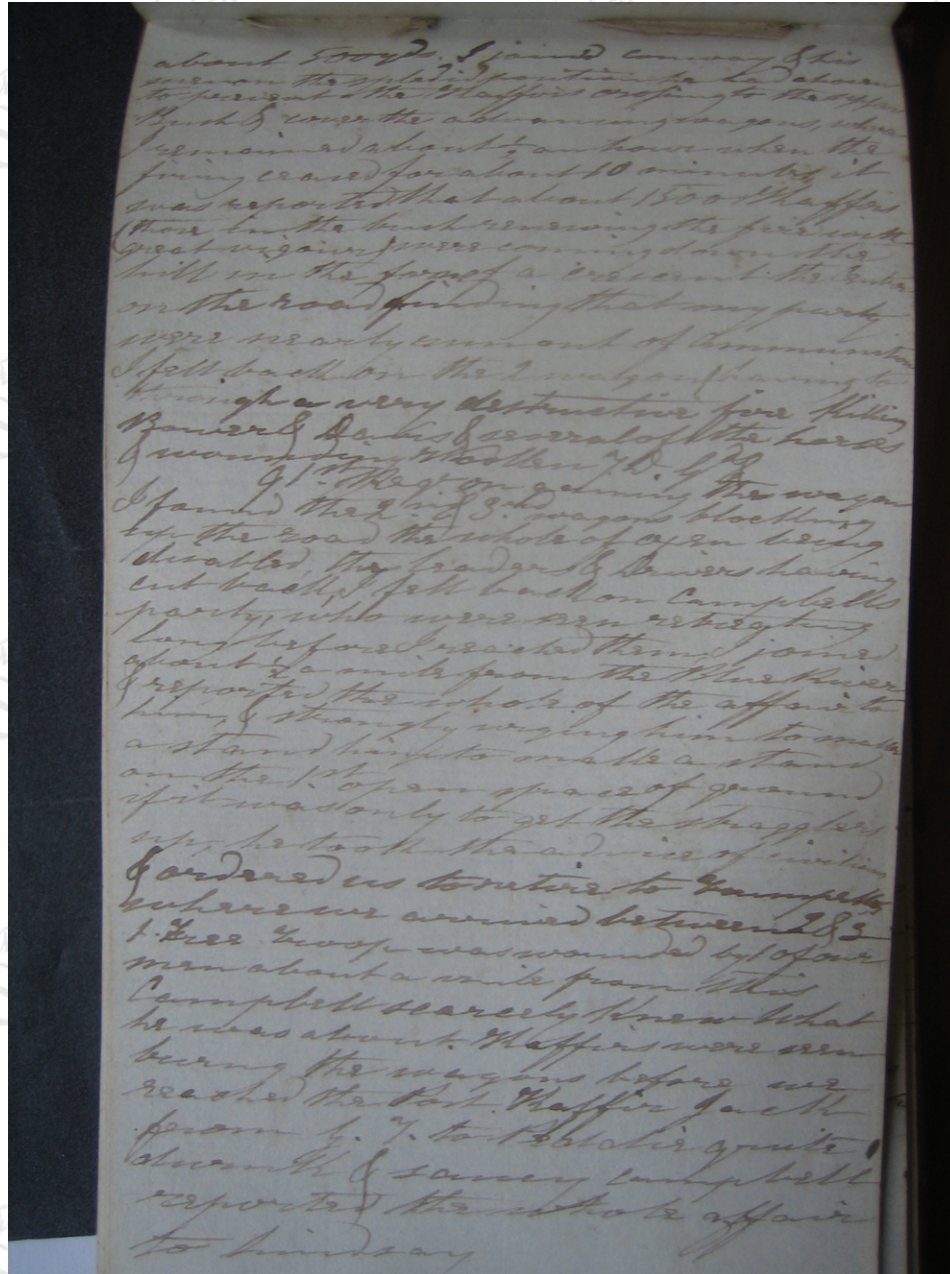 about 500 yds. I joined Conway & his
men on the position he had
to prevent the Khaffirs crossing to the upper
Bush & cover the advancing wagons, where
I remained about ½ an hour when the
firing ceased for about 10 minutes, it
was reported that about 1500 Khaffirs
(those in the bush renewing the fire with
great vigour) were coming down the
hill in the form of a crescent the centre
on the road finding that my party
were nearly run out of Ammunition
I fell back on the 2 wagon (having to
through a very destructive fire killing
Bower & Davis & several of the horses
& wounding 7. D. Gds
91st. Regt on gaining the wagon
I found the 2nd & 3rd wagons blocking
up the road the whole of oxen being
disabled the leaders & Drivers having
cut back, I fell back on Campbells
party, who were seen retreating
long before I reached them, joined
about ½ a mile from the Blue River
& reported the whole of the affair to
him, & strongly urging him to make
a stand him to make a stand
on the 1st open space of ground
if it was only to get the stragglers
up, he took the advice of
& ordered us to retire to Trumpetter
where we arrived between 2 & 3
1. Free. Troop was wounded by 1 of our
men about a mile from this
Campbell scarcely knew what
he was about. Khaffirs were seen
burng the wagons before we
reached the Post. Khaffir Jack
from G. T. to quite
drunk & saucy Campbell
reported the whole affair
to Lindsay